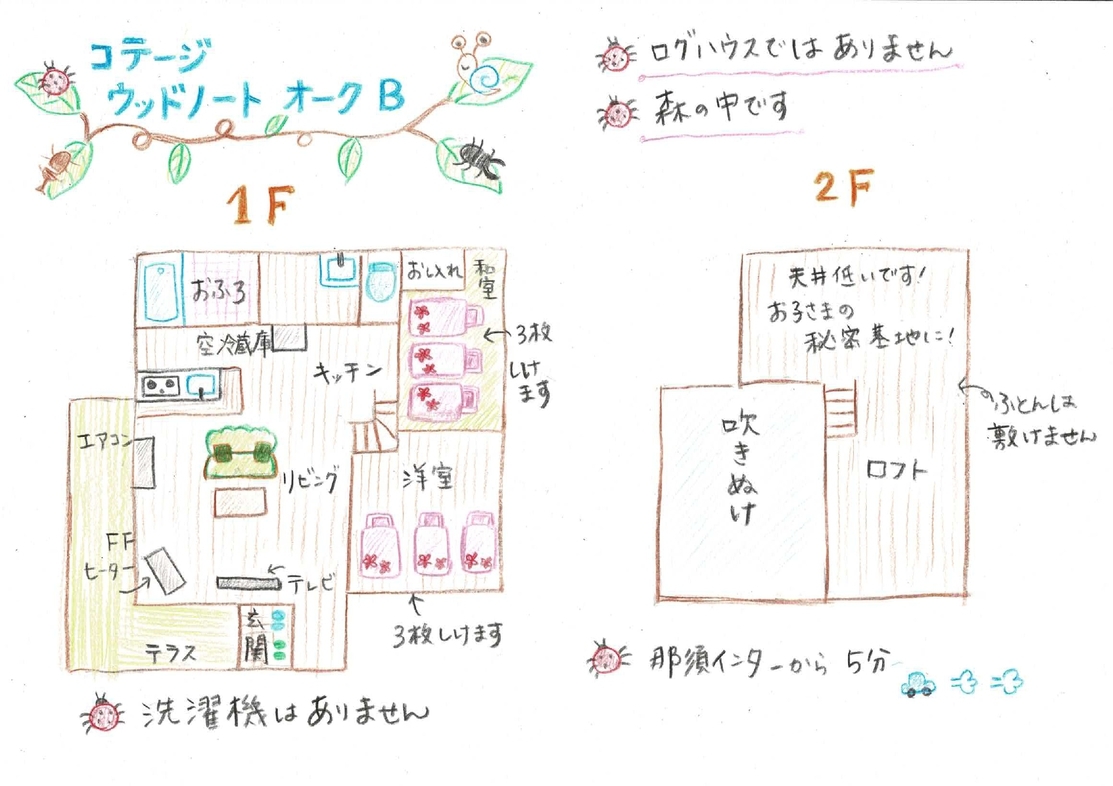 コテージ
ウッドノート オーク B
ログハウスではありません
森の中です
1F
おふろ
おし入れ
和室
空冷蔵庫
キッチン
3枚
しけ
ます
エアコン
リビング
洋室
FF
ヒーター
テレビ
テラス
玄関
3枚しけます
洗濯機はありません
2F
天井低いです!
お子さまの
秘密基地に!
吹きぬけ
ロフト
ふとんは
敷けません
那須インターから 5分